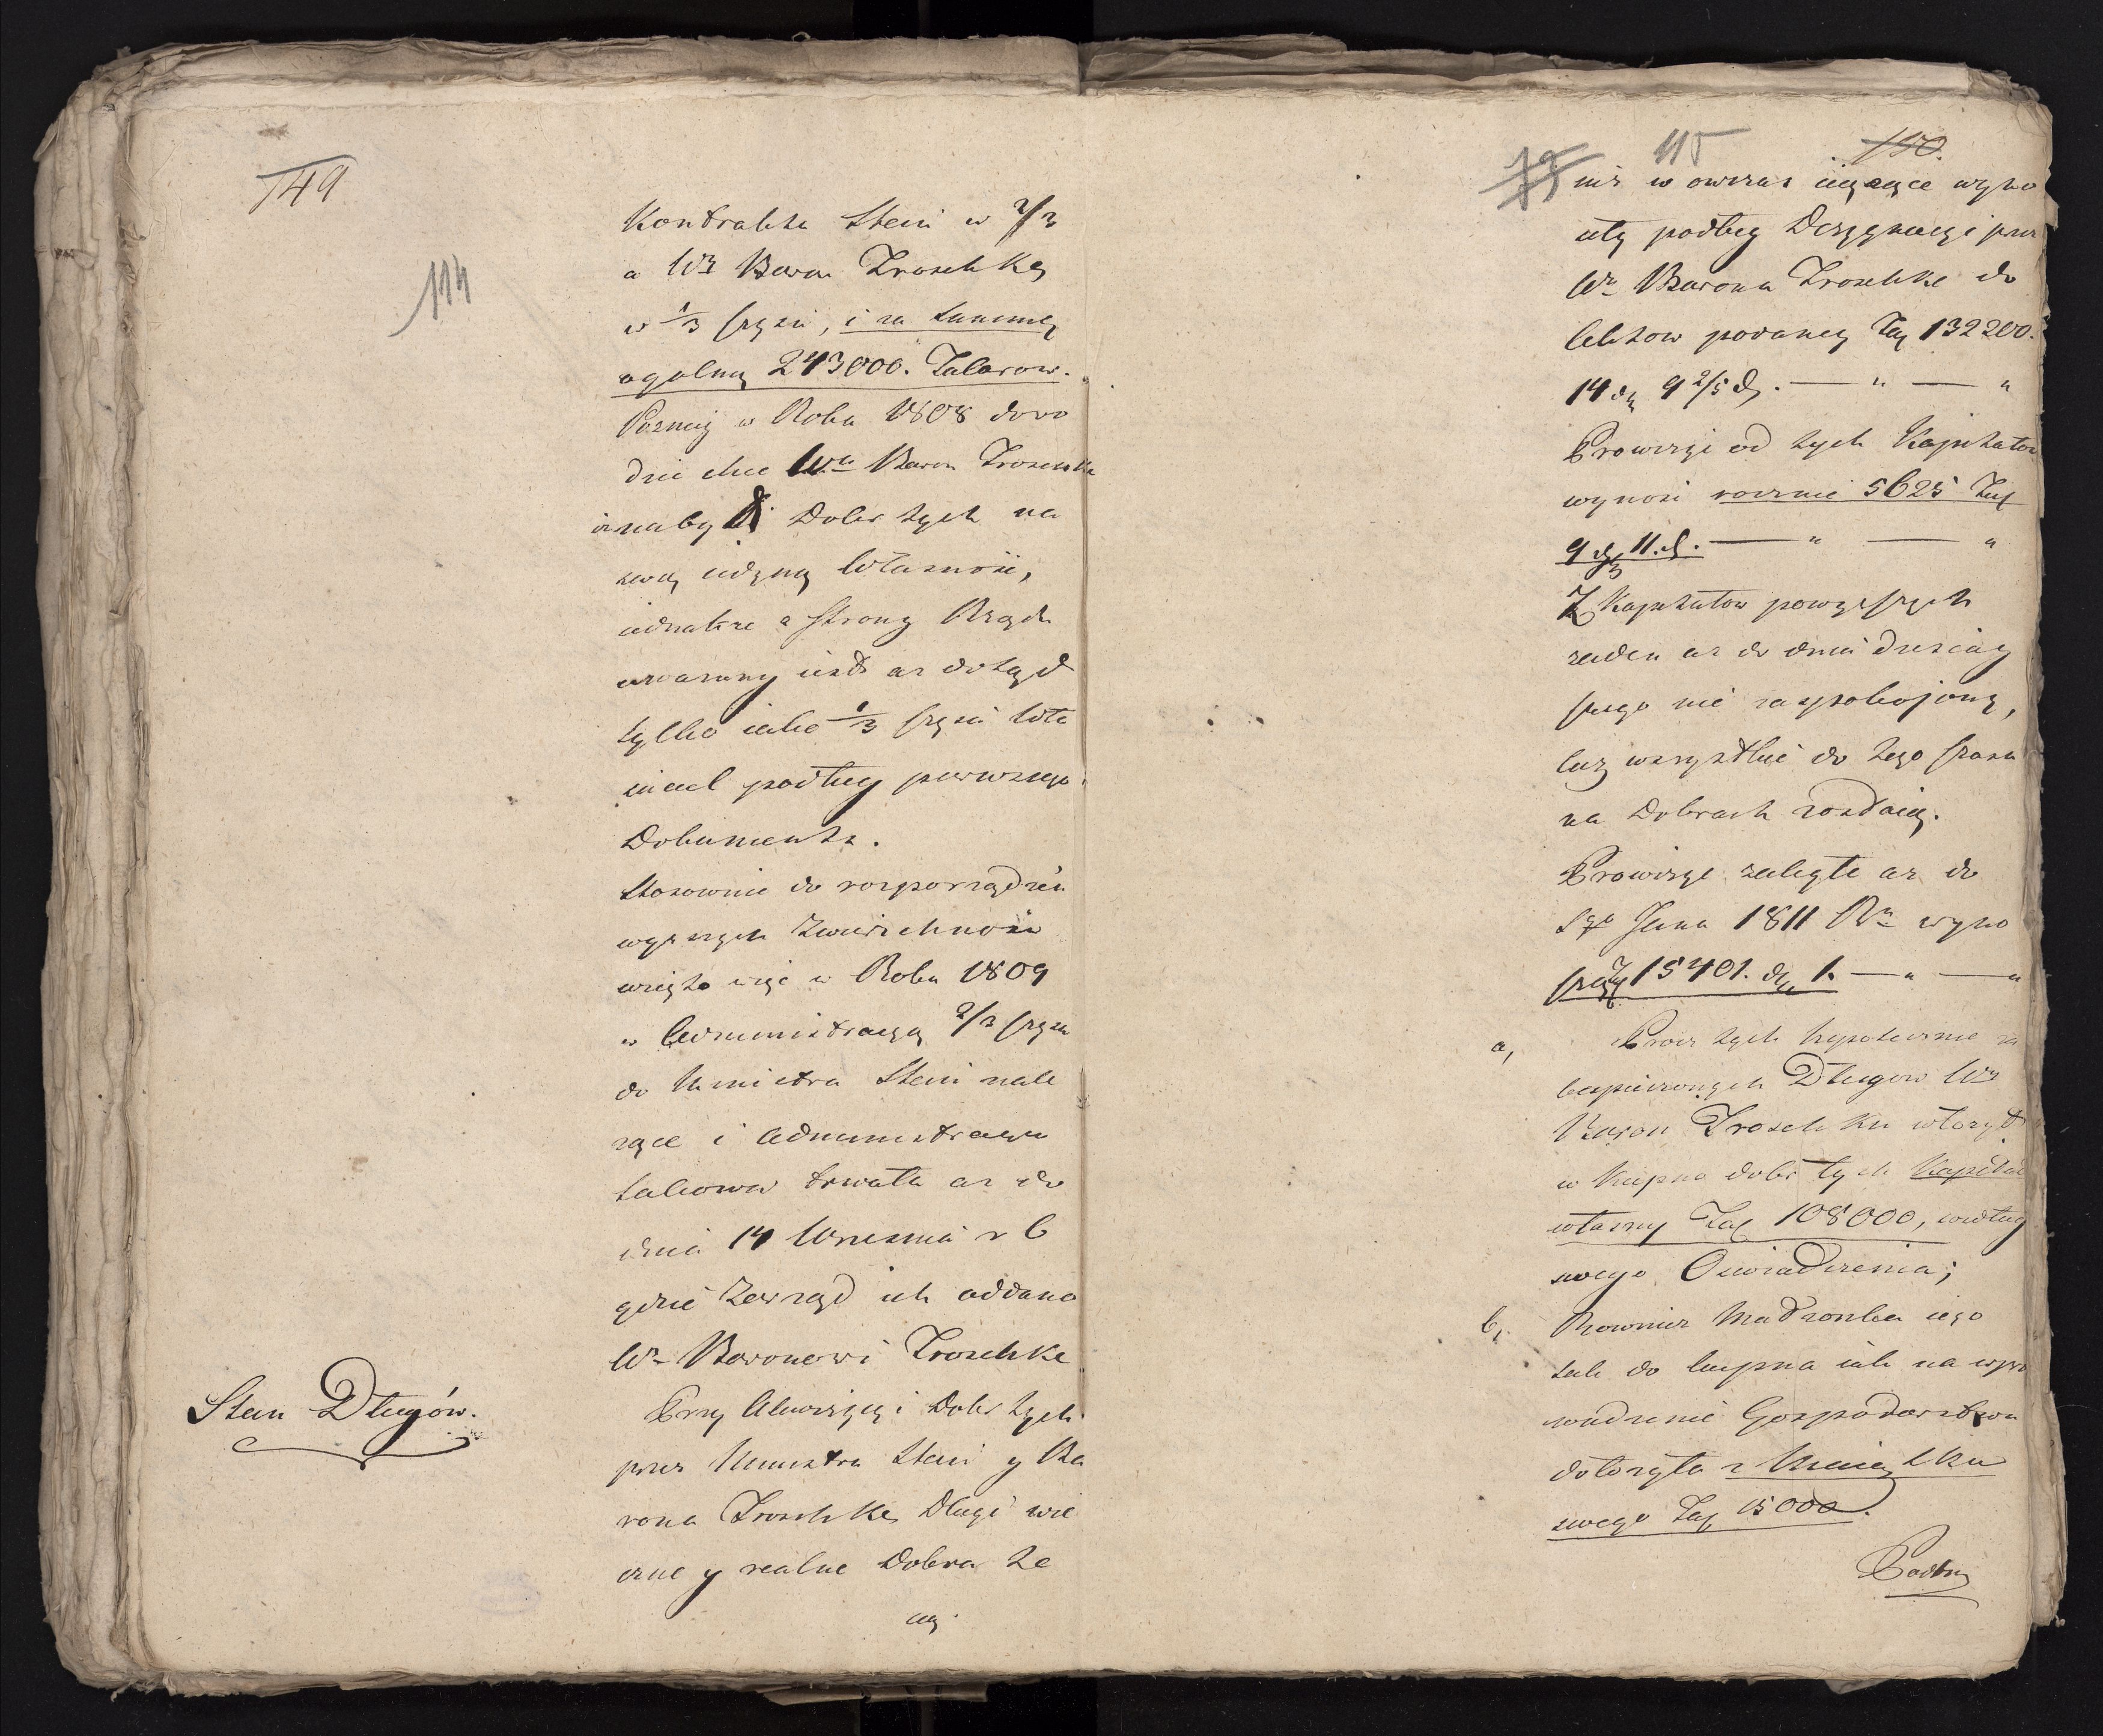 149
114
Kontraktu Stein w 2/3
a Wny Baron Troschke
w 1/3 części, i za summę
ogolną 243000. Talarow.
Pozniey w Roku 1808 dowo
dzić chce Wny Baron Troschke
iż naby Dobr tych na
swoią iedyną własność,
iednakże z strony Rządu
uważany iest aż dotąd
tylko iako 1/3 części wła
ściciel podług pierwszego
Dokumentu.
Stosownie do rozporządzeń
wyższych Zwierzchności
wzięto więc w Roku 1809
w Administracyą 2/3 części
do Ministra Stein nale
żące i Administracya
takowa trwała aż do
dnia 14 Września r b
gdzie Zarząd ich oddano
Wu Baronowi Troschke
Stan Długów.
Przy Alewizycyi Dobr tych
przez Ministra Stein y Ba
rona Troschke Długi wie
czne y realne Dobra te
cią
115
150.
79
niż w owczas ciążące wyno
siły podług Desygnacyi przez
Wo Barona Troschke do
Aktow podaney Tal 132200.
14 dg 9 2/5 d. — " — "
Prowizyi od tych Kapitałow
wynosi rocznie 5625 Tal
9 dg 11. d. — " — "
Z Kapitałow powyższych
żaden aż do dnia dzisiay
szego nie zaspokojony,
lecz wszystkie do tego czasu
na Dobrach zostaią.
Prowizye zaległe aż do
Sgo Jana 1811 Ru wyno
szą Tal 15401. dg 1. — " — "
a, Procz tych hypotecznie za
bespieczonych Długow Wny
Baron Troschke włożył
w kupno dobr tych Kapitał
własny Tal 108000, według
swego Oswiadczenia;
b, Rownież Małżonka iego
tak do kupna iak na wpro
wadzenie Gospodarstwa
dołożyła z Maiątku
swego Tal 15000.
Podług